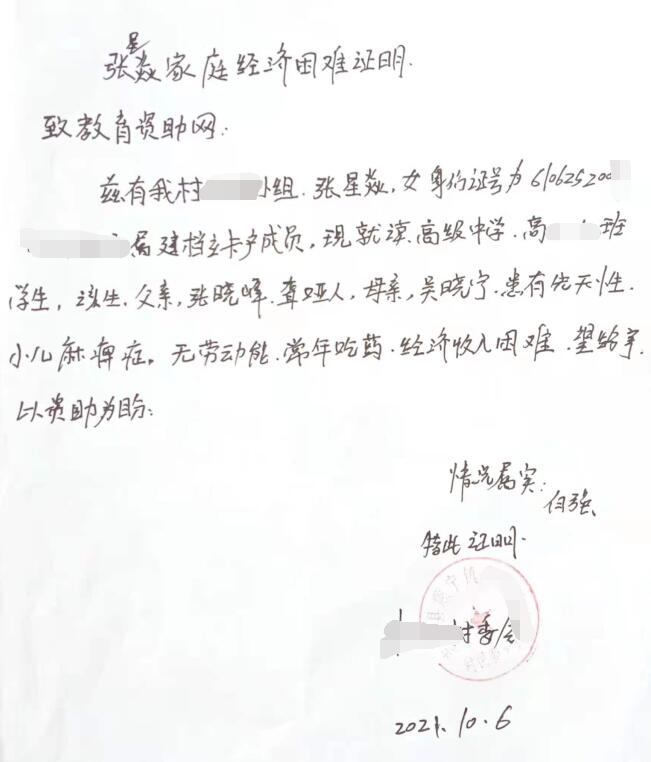 张星焱家庭经济困难证明.
致教育资助网:
兹有我村 小组.张星焱,女身份证号为610625200
属建档立卡户成员,现就读.高级中学.高 班
学生,该生.父亲,张晓峰.聋哑人,母亲,吴晓宁.患有先天性.
小儿麻痹症。无劳动能.常年吃药.经济收入困难.望给予.
以资助为盼:
情况属实:
白强
特此证明.
村委会
2021.10.6